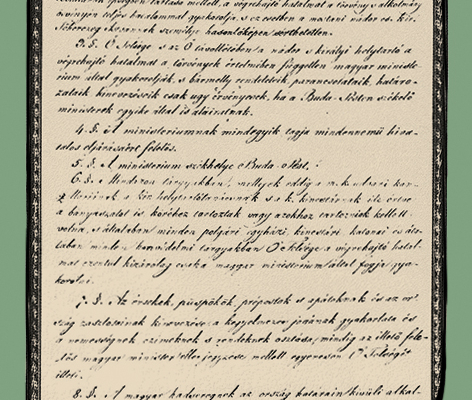 épségben tartása mellett, a végrehajtó hatalmat a törvény s alkotmány
ösvényén teljes hatalommal gyakorolja, s ez esetben a mostani nádor cs. kir.
főherczeg István személye hasonlóképen sérthetetlen.
3. §. Ő Felsége s az Ő távollétében a nádor s királyi helytartó a
végrehajtó hatalmat a törvények értelmében független magyar ministe-
rium által gyakorolják, s bármelly rendeleteik, parancsolataik, határo-
zataik, kinevezéseik csak ugy érvényesek, ha a Buda-Pesten székelő
ministerek egyike által is aláíratnak.
4. §. A ministeriumnak mindegyik tagja mindennemű hiva-
talos eljárásáért felelős.
5. §. A ministerium székhelye Buda-Pest.
6. §. Mindazon tárgyakban, mellyek eddig a m. k. udvari kan-
czelláriának, a kir. helytartótanácsnak, s a k. kincstárnak, ide értve
a bányászatot is, köréhez tartoztak, vagy azokhoz tartozniok kellett
volna, s általában minden polgári, egyházi, kincstári, katonai, és álta-
lában minden honvédelmi tárgyakban Ő Felsége a végrehajtó hatal-
mat ezentul kizárólag csak a magyar ministerium által fogja gya-
korolni.
7. §. Az érsekek, püspökök, prépostok s apátoknak és az or-
szág zászlósainak kinevezése, a kegyelmezés jogának gyakorlata és
a nemességnek, czimeknek, s rendeknek osztása, mindig az illető fele-
lős magyar minister ellenjegyzése mellett, egyenesen Ő Felségét
illeti.
8. §. A magyar hadseregnek az ország határain kivüli alkal-